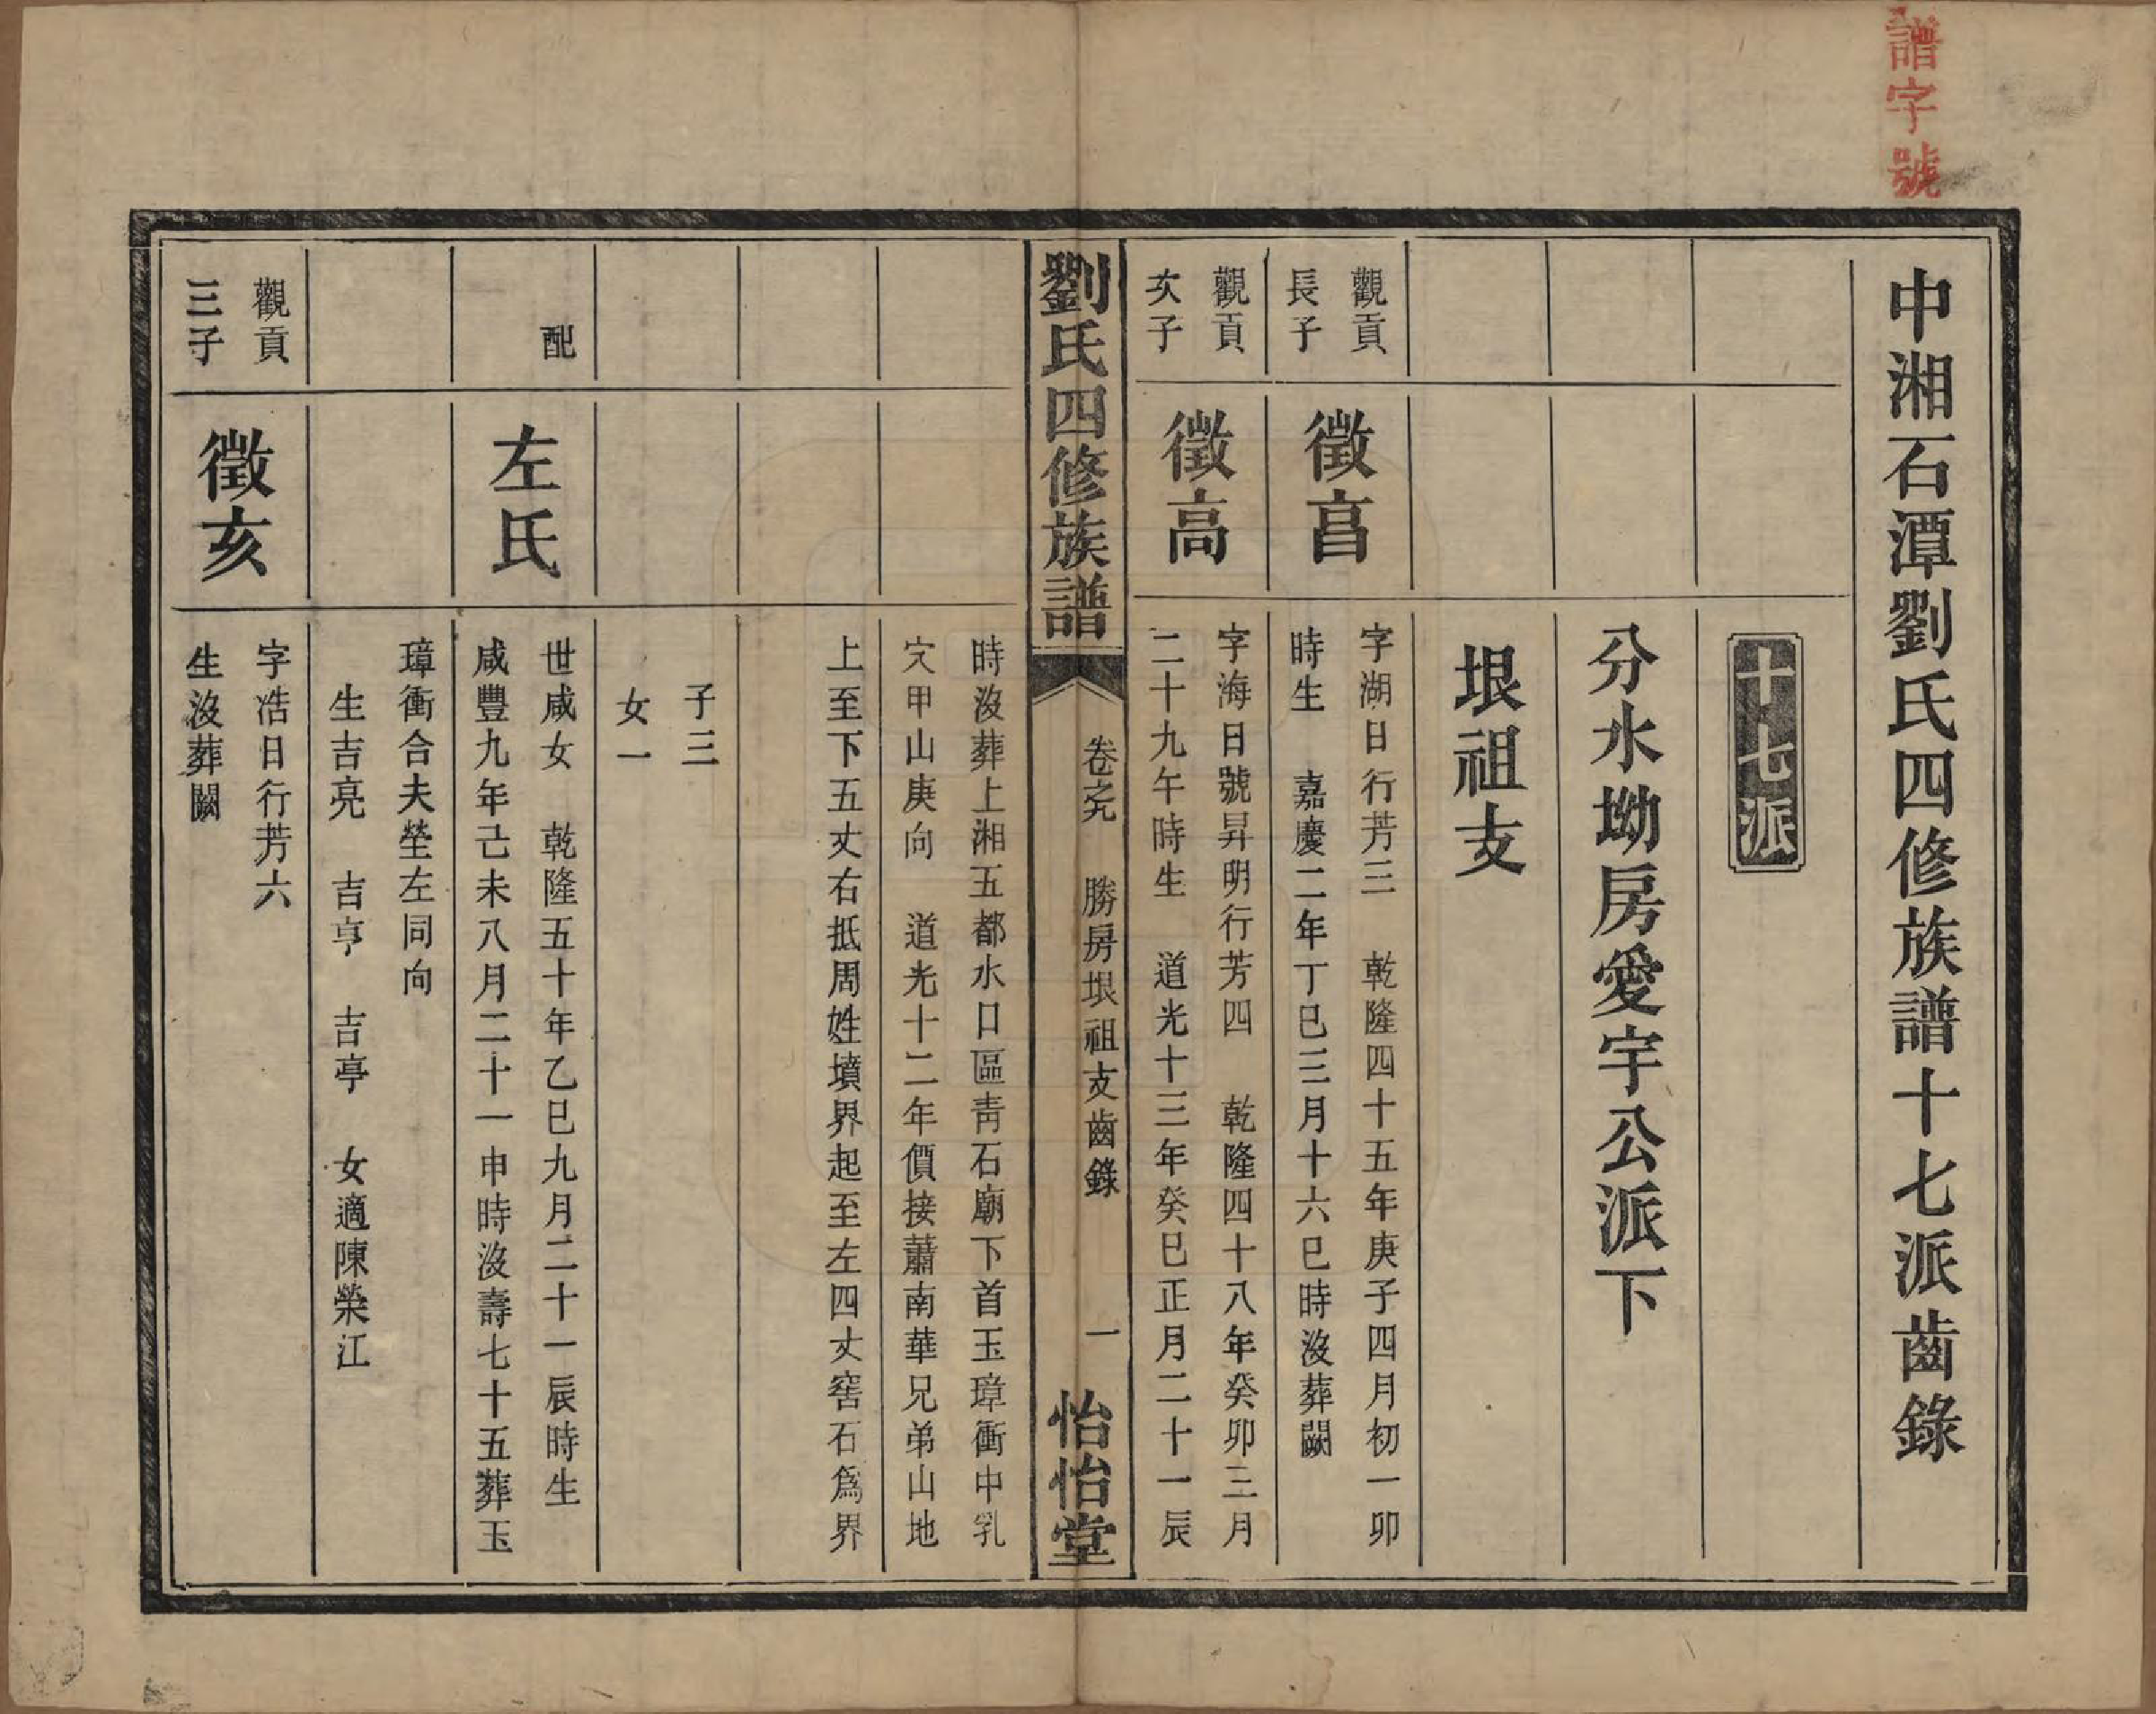 譜字號
中湘石潭劉氏四修族譜十七派齒錄
十七派
分水坳房愛宇公派下
垠祖支
觀貢
長子
徵昌
字湖日行芳三　乾隆四十五年庚子四月初一卯
時生　嘉慶二年丁巳三月十六巳時沒葬闕
觀貢
次子
徵高
字海日號昇明行芳四　乾隆四十八年癸卯三月
二十九午時生　道光十三年癸巳正月二十一辰
劉氏四修族譜
卷之九　勝房垠祖支齒錄　一
怡怡堂
時沒葬上湘五都水口區青石廟下首玉璋衝中乳
穴甲山庚向　道光十二年價接蕭南華兄弟山地
上至下五丈右抵周姓墳界起至左四丈窖石爲界
子三
女一
配
左氏
世咸女　乾隆五十年乙巳九月二十一辰時生
咸豐九年己未八月二十一申時沒壽七十五葬玉
璋衝合夫塋左同向
生吉亮　吉亨　吉亭　女適陳榮江
觀貢
三子
徵亥
字浩日行芳六
生沒葬闕